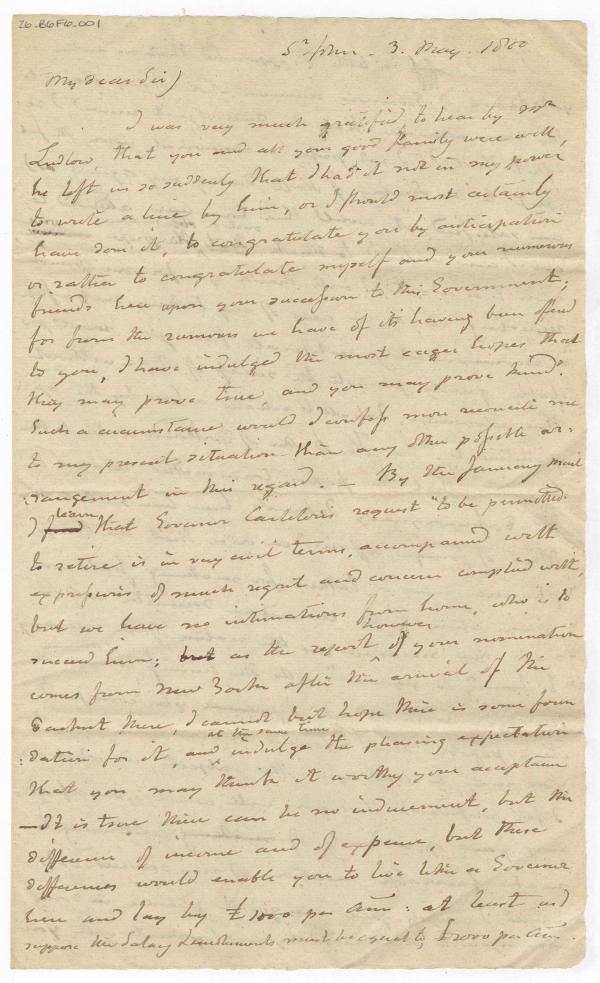 26-B6F6-001
St John. 3. May. 1800
My dear Sir)
I was very much gratified, to hear by Mr
Ludlow, that you and all your good family were well,
he left us so suddenly that I had it not in my power
to write a line by him, or I should most certainly
have don it, to congratulate you by anticipation
or rather to congratulate myself and your numerous
friends here upon your succession to this Government;
for from the rumours we have of it's having been offered
to you, I have indulged the most eager hopes that
they may prove true, and you may prove kind.
Such a circumstance would I confess more reconcile me
to my present situation than any other possible ar=
:rangement in this regard. — By the January mail
I learn that Governor Carleton's request "to be permitted
to retire is in very civil terms, accompanied with
expressions of much regret and concern complied with,
but we have no intimations from home, who is to
succeed him; but as the report however of your nomination
comes from New York after the arrival of the
Packet there, I cannot but hope there is some foun
:dation for it, and at the same time indulge the pleasing expectation
that you may think it worthy your acceptance
— It is true there can be no inducement, but the
difference of income and of expence, but these
differences would enable you to live like a Governor
here and lay by £1000 per Ann: at least, as I
suppose the Salary & emoluments must be equal to £2000 per Ann.